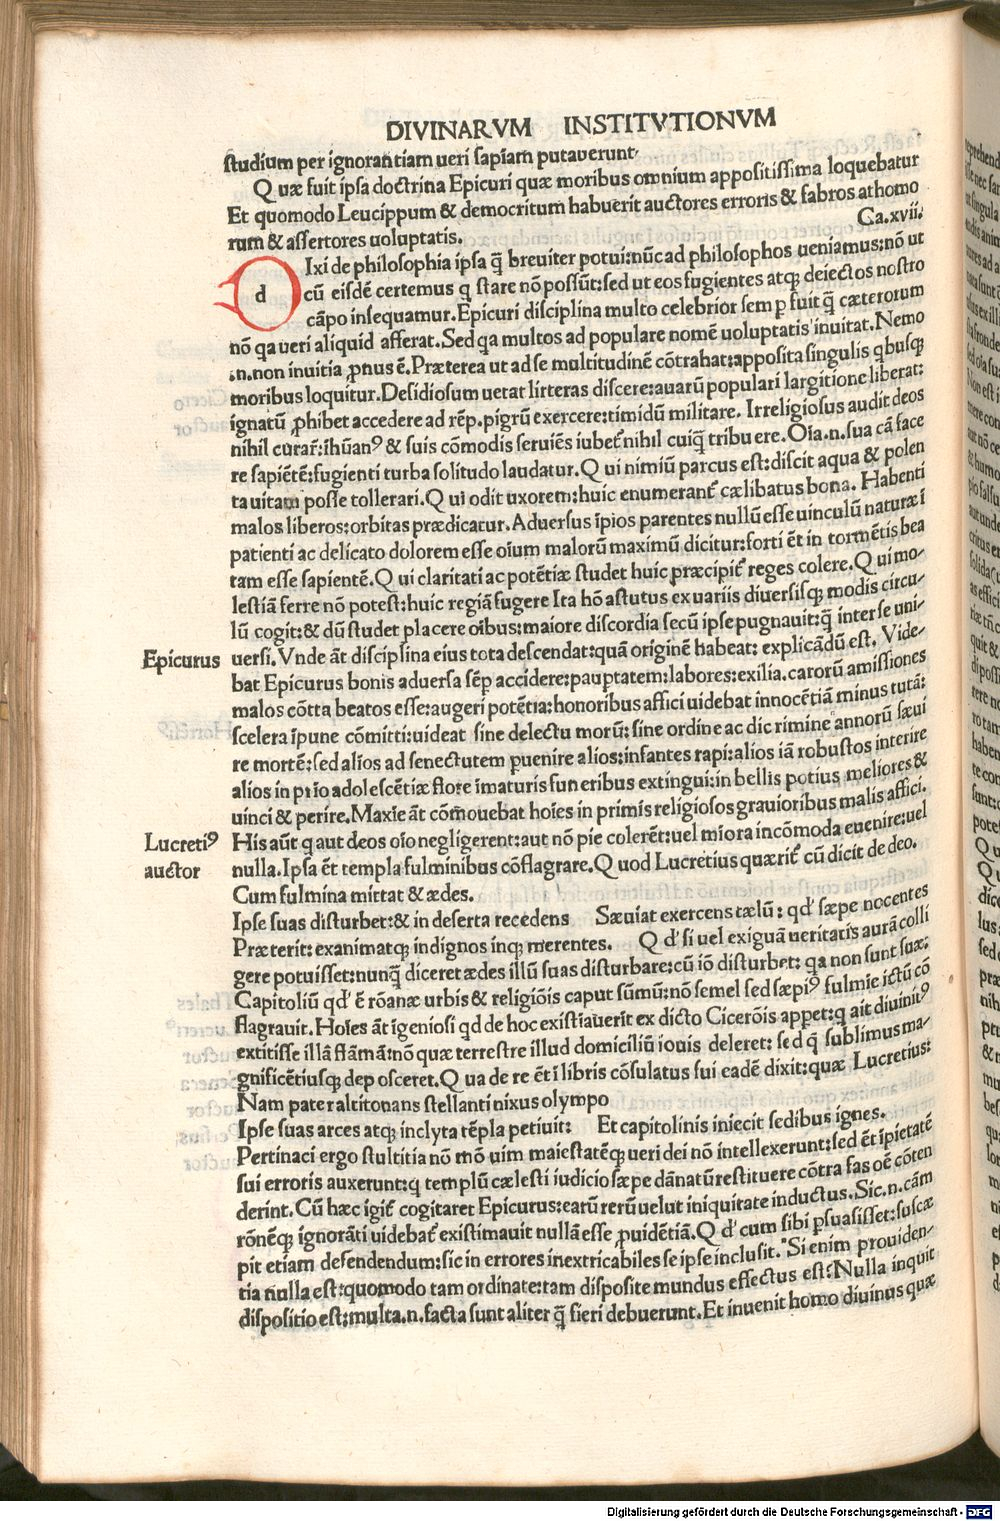 DIVINARVM INSTITVTIONVM
studium per ignorantiam ueri sapiam putauerunt
Quæ fuit ipsa doctrina Epicuri quæ moribus omnium appositissima loquebatur
Et quomodo Leucippum & democritum habuerit auctores erroris & fabros athomo
rum & assertores uoluptatis. Ca.xvii.
d Ixi de philosophia ipsa q̄ breuiter potui:nūc ad philosophos ueniamus:nō ut
cū eisdē certemus q stare nō possūt:sed ut eos fugientes atqꝫ deiectos nostro
cāpo insequamur. Epicuri disciplina multo celebrior semp fuit q̄ cæterorum
nō qa ueri aliquid afferat. Sed qa multos ad populare nomē uoluptatis inuitat. Nemo
.n. non in uitia pnus ē. Præterea ut ad se multitudinē cōtrahat:apposita singulis qbusqꝫ
moribus loquitur. Desidiosum uetat lirteras discere:auarū populari largitione liberat:
ignatū ꝓhibet accedere ad rēp. pigrū exercere:timidū militare. Irreligiosus audit deos
nihil curar̄:īhūan⁹ & suis cōmodis seruiēs iubet̄ nihil cuiq̄ tribuere. Oīa.n.sua cā face
re sapiētē:fugienti turba solitudo laudatur. Qui nimiū parcus est:discit aqua & polen
ta uitam posse tollerari. Qui odit uxorem:huic enumerant̄ cælibatus bona. Habenti
malos liberos:orbitas prædicatur. Aduersus īpios parentes nullū esse uinculū naturæ ī
patienti ac delicato dolorem esse oium malorū maximū dicitur:forti ēt in tormētis bea
tam esse sapientē. Qui claritati ac potētiæ studet huic præcipit̄ reges colere. Qui mo-
lestiā ferre nō potest:huic regiā fugere Ita hō astutus ex uariis diuersisqꝫ modis circu-
lū cogit:& dū studet placere oībus:maiore discordia secū ipse pugnauit:q̄ inter se uni-
Epicurus uersi. Vnde āt disciplina eius tota descendat:quā originē habeat: explicādū est. Vide-
bat Epicurus bonis aduersa sēp accidere:pauptatem:labores:exilia.carorū amissiones
malos cōtta beatos esse:augeri potētia:honoribus affici uidebat innocētiā minus tutā:
scelera īpune cōmitti:uideat sine delectu morū:sine ordine ac dic rimine annorū sæui
re mortē:sed alios ad senectutem puenire alios:infantes rapi:alios iā robustos interire
alios in prīo adolescētiæ flore imaturis funeribus extingui:in bellis potius meliores &
uinci & perire. Maxīe āt cōmouebat hoīes in primis religiosos grauioribus malis affici.
Lucreti⁹ His aūt q aut deos oīo negligerent:aut nō pie colerēt:uel mīora incōmoda euenire:uel
auctor nulla. Ipsa ēt templa fulminibus cōflagrare. Quod Lucretius quærit̄ cū dicit de deo.
Cum fulmina mittat & ædes.
Ipse suas disturbet:& in deserta recedens Sæuiat exercens tælū: qd' sæpe nocentes
Præterit: exanimatqꝫ indignos inqꝫ merentes. Qd' si uel exiguā ueritatis aurā colli
gere potuisset:nunq̄ diceret ædes illū suas disturbare:cū iō disturbet: qa non sunt suæ:
Capitoliū qd' ē rōanæ urbis & religiōis caput sūmū:nō semel sed sæpi⁹ fulmīe ictū cō
flagrauit. Hoīes āt īgeniosi qd de hoc existīauerīt ex dicto Cicerōis appet:q ait diuinit⁹
extitisse illā flāmā:nō quæ terrestre illud domiciliū iouis deleret: sed q̄ sublimus ma-
gnificētiusqꝫ deposceret. Qua de re ēt ī libris cōsulatus sui eadē dixit:quæ Lucretius:
Nam pater altitonans stellanti nixus olympo
Ipse suas arces atqꝫ inclyta tēpla petiuit: Et capitolinis iniecit sedibus ignes.
Pertinaci ergo stultitia nō mō uim maiestatēqꝫ ueri dei nō intellexerunt:sed ēt īpietatē
sui erroris auxerunt:q templū cælesti iudicio sæpe dānatū restituere cōtra fas oē cōten
derint. Cū hæc igit̄ cogitaret Epicurus:earū rerū uelut iniquitate inductus. Sic.n.cām
rōnēqꝫ ignorāti uidebat̄ existimauit nullā esse ꝓuidētiā. Qd' cum sibi psuasisset:suscæ
pit etiam defendendum:sic in errores inextricabiles se ipse inclusit. Si enim prouiden-
tia nulla est:quomodo tam ordinate:tam disposite mundus effectus est: Nulla inquit
dispositio est:multa.n.facta sunt aliter q̄ fieri debuerunt. Et inuenit homo diuinus quæ
Digitalisierung gefördert durch die Deutsche Forschungsgemeinschaft - DFG